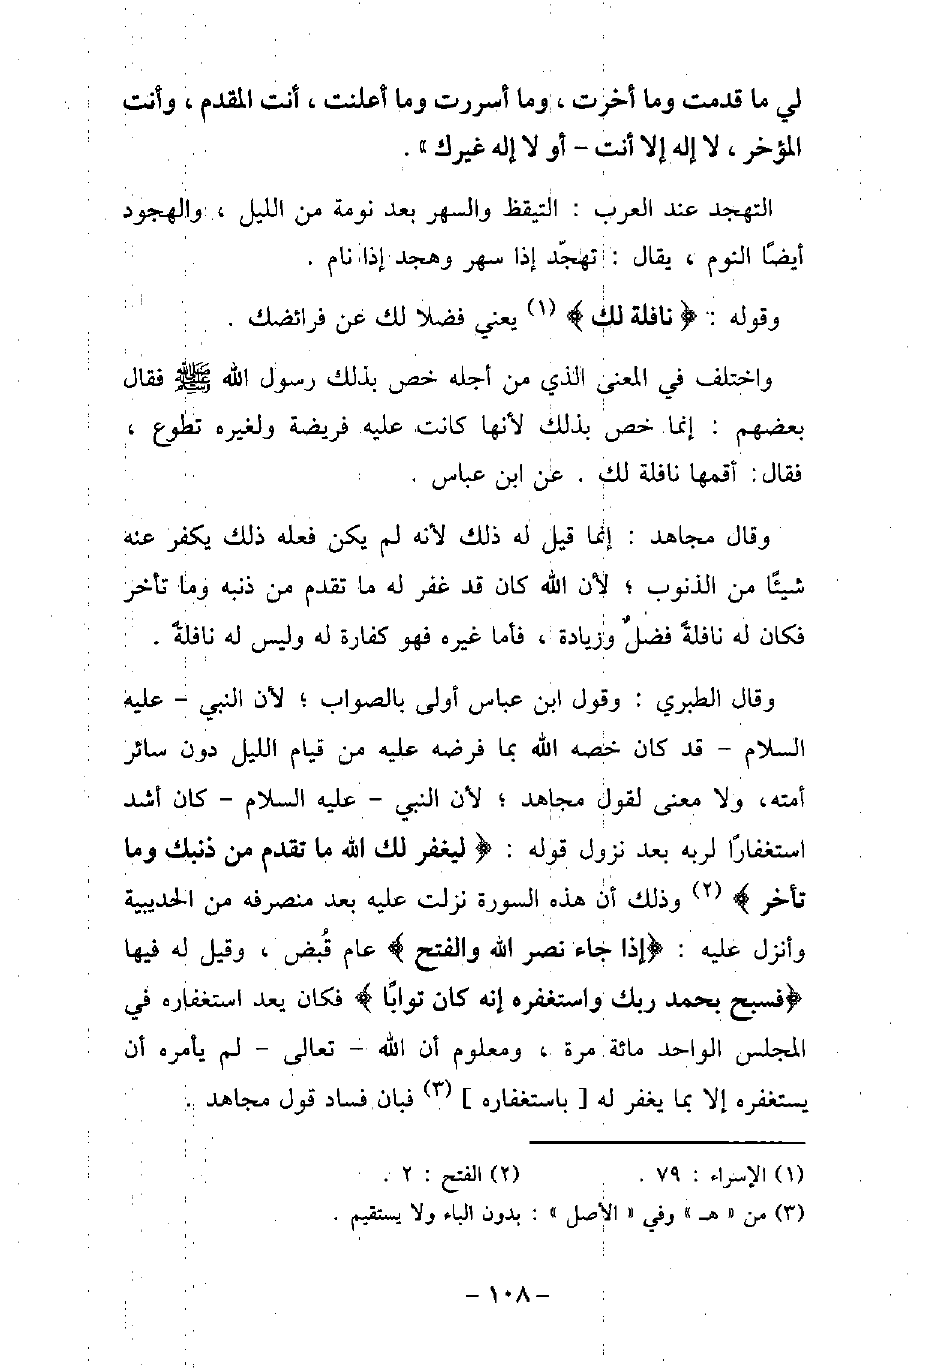 لي ما قدمت وما أخرت ، وما أسررت وما أعلنت ، أنت المقدم ، وأنت
المؤخر ، لا إله إلا أنت – أو لا إله غيرك » .
التهجد عند العرب : التيقظ والسهر بعد نومة من الليل ، والهجود
أيضًا النوم ، يقال : تهجّد إذا سهر وهجد إذا نام .
وقوله : ﴿ نافلة لك ﴾ (١) يعني فضلا لك عن فرائضك .
واختلف في المعنى الذي من أجله خص بذلك رسول الله ﷺ فقال
بعضهم : إنما خص بذلك لأنها كانت عليه فريضة ولغيره تطوع ،
فقال : أقمها نافلة لك . عن ابن عباس .
وقال مجاهد : إنما قيل له ذلك لأنه لم يكن فعله ذلك يكفر عنه
شيئًا من الذنوب ؛ لأن الله كان قد غفر له ما تقدم من ذنبه وما تأخر
فكان له نافلةً فضلٌ وزيادة ، فأما غيره فهو كفارة له وليس له نافلةً .
وقال الطبري : وقول ابن عباس أولى بالصواب ؛ لأن النبي – عليه
السلام – قد كان خصه الله بما فرضه عليه من قيام الليل دون سائر
أمته، ولا معنى لقول مجاهد ؛ لأن النبي – عليه السلام – كان أشد
استغفارًا لربه بعد نزول قوله : ﴿ ليغفر لك الله ما تقدم من ذنبك وما
تأخر ﴾ (٢) وذلك أن هذه السورة نزلت عليه بعد منصرفه من الحديبية
وأنزل عليه : ﴿إذا جاء نصر الله والفتح ﴾ عام قُبض ، وقيل له فيها
﴿فسبح بحمد ربك واستغفره إنه كان توابًا ﴾ فكان يعد استغفاره في
المجلس الواحد مائة مرة ، ومعلوم أن الله – تعالى – لم يأمره أن
يستغفره إلا بما يغفر له [ باستغفاره ] (٣) فبان فساد قول مجاهد .
(١) الإسراء : ٧٩ . (٢) الفتح : ٢ .
(٣) من « هـ » وفي « الأصل » : بدون الباء ولا يستقيم .
– ١٠٨ –